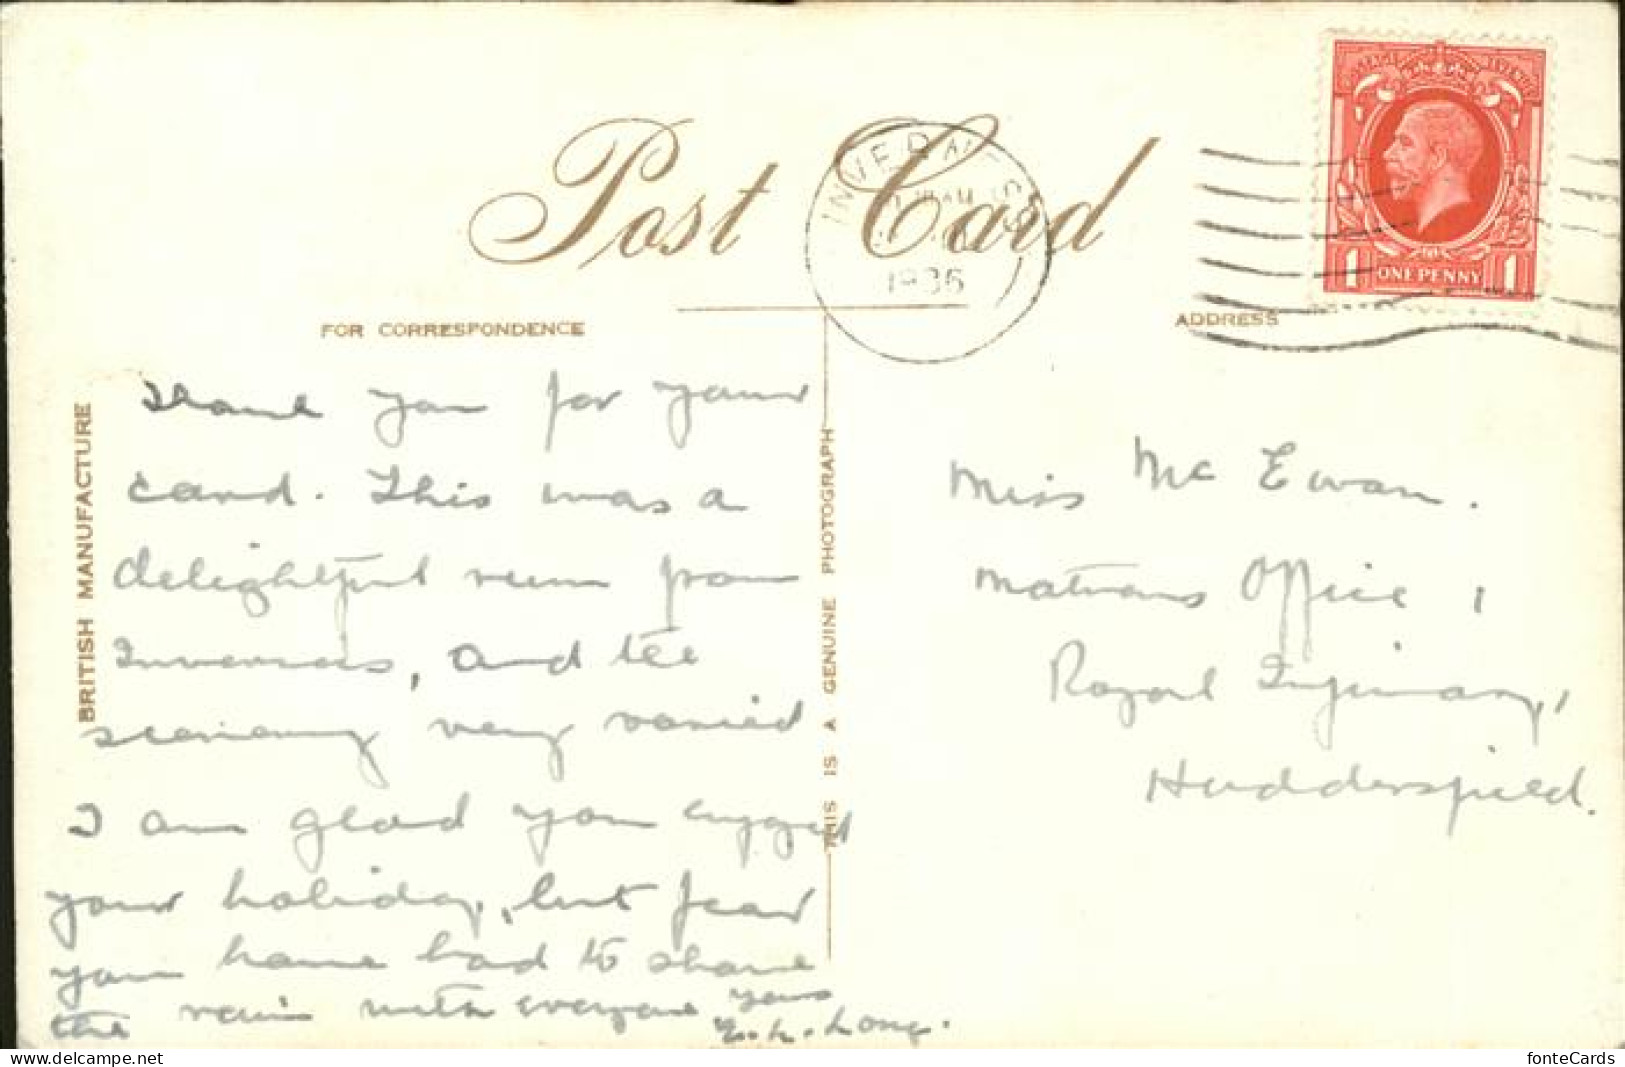 Post Card
INVERNESS
1936
1 ONE PENNY 1
FOR CORRESPONDENCE
ADDRESS
BRITISH MANUFACTURE
THIS IS A GENUINE PHOTOGRAPH
Thank you for your
card. This was a
delightful run from
Inverness, and the
scenery very varied
I am glad you enjoyed
your holiday, but fear
you have had to share
the rain with everyone Yours
L. Long.
Miss McEwan.
Matrons Office,
Royal Infirmary,
Huddersfield.
delcampe.net
fonteCards